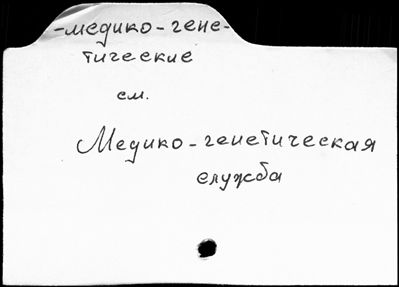 -медико-гене-
тические
см.
Медико-генетическая
служба